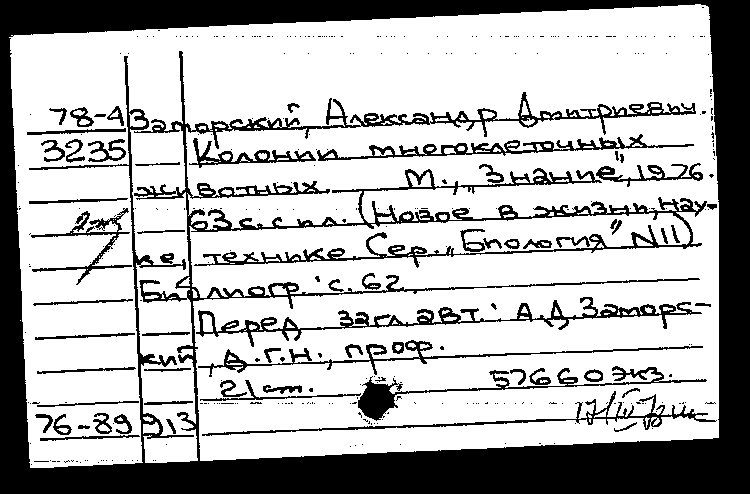 78-4 Заморский, Александр Дмитриевич.
3235 Колонии многоклеточных
животных. М., "Знание", 1976.
2 экз 63 с. с ил. (Новое в жизни, нау-
ке, технике. Сер. "Биология" N11)
Библиогр.: с. 62.
Перед загл. авт.: А.Д. Заморс-
кий, д.г.н., проф.
21 ст. 57660 экз.
76-89913